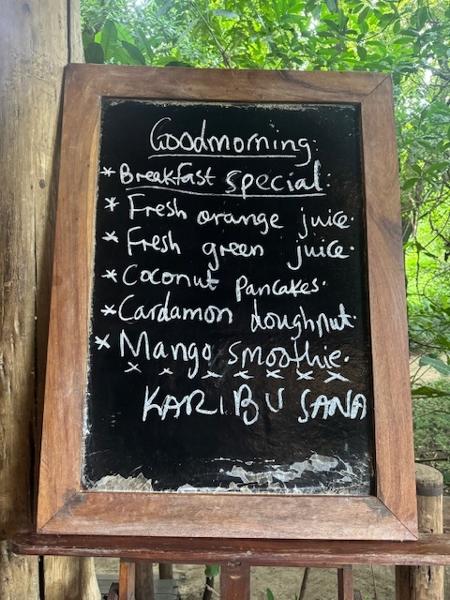 Goodmorning.
* Breakfast special.
* Fresh orange juice.
* Fresh green juice.
* Coconut pancakes.
* Cardamon doughnut.
* Mango smoothie.
x x x x x x x
KARIBU SANA